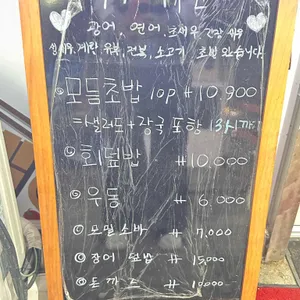 광어, 연어, 초새우, 간장새우
생새우, 계란, 유부, 전복, 소고기 초밥 있습니다.
모듬초밥 10P ₩10,900
=>샐러드+장국 포함 13시까지
회덮밥 ₩10,000
우동 ₩6,000
모밀소바 ₩7,000
장어덮밥 ₩15,000
돈까스 ₩10,000